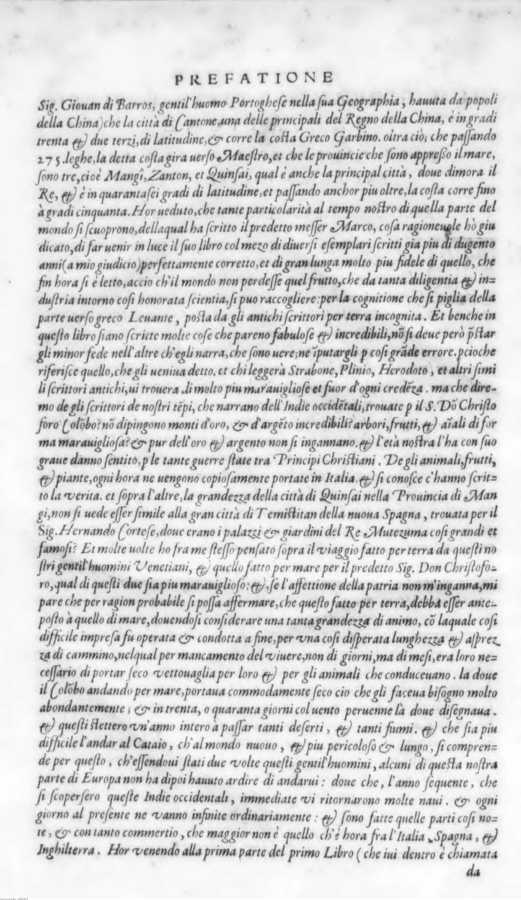 PREFATIONE
Sig. Giouan di Barros, gentil'huomo Portoghese nella sua Geographia, hauuta da popoli
della China) che la città di Cantone, una delle principali del Regno della China, è in gradi
trenta & due terzi, di latitudine, & corre la costa Greco Garbino. oltra ciò, che passando
275. leghe, la detta costa gira uerso Maestro, et che le prouincie che sono appresso il mare,
sono tre, cioè Mangi, Zanton, et Quinsai, qual è anche la principal città, doue dimora il
Re, & è in quarantasei gradi di latitudine, et passando anchor piu oltre, la costa corre fino
à gradi cinquanta. Hor ueduto, che tante particolarità al tempo nostro di quella parte del
mondo si scuoprono, della qual ha scritto il predetto messer Marco, cosa ragioneuole hò giu
dicato, di far uenir in luce il suo libro col mezo di diuersi esemplari scritti gia piu di dugento
anni (a mio giudicio) perfettamente corretto, et di gran lunga molto piu fidele di quello, che
fin hora si è letto, accio ch'il mondo non perdesse quel frutto, che da tanta diligentia & in-
dustria intorno cosi honorata scientia, si puo raccogliere: per la cognitione che si piglia della
parte uerso greco Leuante, posta da gli antichi scrittori per terra incognita. Et benche in
questo libro siano scritte molte cose che pareno fabulose & incredibili, nō si deue però p̄star
gli minor fede nell'altre ch'egli narra, che sono uere, ne īputargli p cosi grāde errore. pcioche
riferisce quello, che gli ueniua detto, et chi leggerà Strabone, Plinio, Herodoto, et altri simi
li scrittori antichi, ui trouera di molto piu marauigliose et fuor d'ogni credēza. ma che dire-
mo de gli scrittori de nostri tēpi, che narrano dell'Indie occidētali, trouate p il S. Dō Christo
foro Colōbo? nō dipingono monti d'oro, & d'argēto incredibili? arbori, frutti, & aīali di for
ma marauigliosa? & pur dell'oro & argento non si ingannano, & l'età nostra l'ha con suo
graue danno sentito, p le tante guerre state tra Principi Christiani. De gli animali, frutti,
& piante, ogni hora ne uengono copiosamente portate in Italia, & si conosce c'hanno scrit-
to la verita. et sopra l'altre, la grandezza della città di Quinsai nella Prouincia di Man
gi, non si uede esser simile alla gran città di Temistitan della nuoua Spagna, trouata per il
Sig. Hernando Cortese, doue erano i palazzi & giardini del Re Mutezuma cosi grandi et
famosi? Et molte uolte ho fra me stesso pensato sopra il viaggio fatto per terra da questi no
stri gentil'huomini Venetiani, & quello fatto per mare per il predetto Sig. Don Christofo-
ro, qual di questi due sia piu marauiglioso: &, se l'affettione della patria non m'inganna, mi
pare che per ragion probabile si possa affermare, che questo fatto per terra, debba esser ante-
posto à quello di mare, douendosi considerare una tanta grandezza di animo, cō laquale cosi
difficile impresa fu operata & condotta a fine, per vna cosi disperata lunghezza & asprez
za di cammino, nelqual per mancamento del viuere, non di giorni, ma di mesi, era loro ne-
cessario di portar seco vettouaglia per loro & per gli animali che conduceuano. la doue
il Colōbo andando per mare, portaua commodamente seco cio che gli faceua bisogno molto
abondantemente, & in trenta, o quaranta giorni col uento peruenne là doue disegnaua.
& questi stettero un'anno intero a passar tanti deserti, & tanti fiumi. & che sia piu
difficile l'andar al Cataio, ch'al mondo nuouo, & piu pericoloso & lungo, si compren-
de per questo, ch'essendoui stati due volte questi gentil'huomini, alcuni di questa nostra
parte di Europa non ha dipoi hauuto ardire di andarui: doue che, l'anno sequente, che
si scopersero queste Indie occidentali, immediate vi ritornarono molte naui, & ogni
giorno al presente ne vanno infinite ordinariamente: & sono fatte quelle parti cosi no-
te, & con tanto commertio, che maggior non è quello ch'è hora fra l'Italia, Spagna, &
Inghilterra. Hor venendo alla prima parte del primo Libro (che iui dentro è chiamata
da